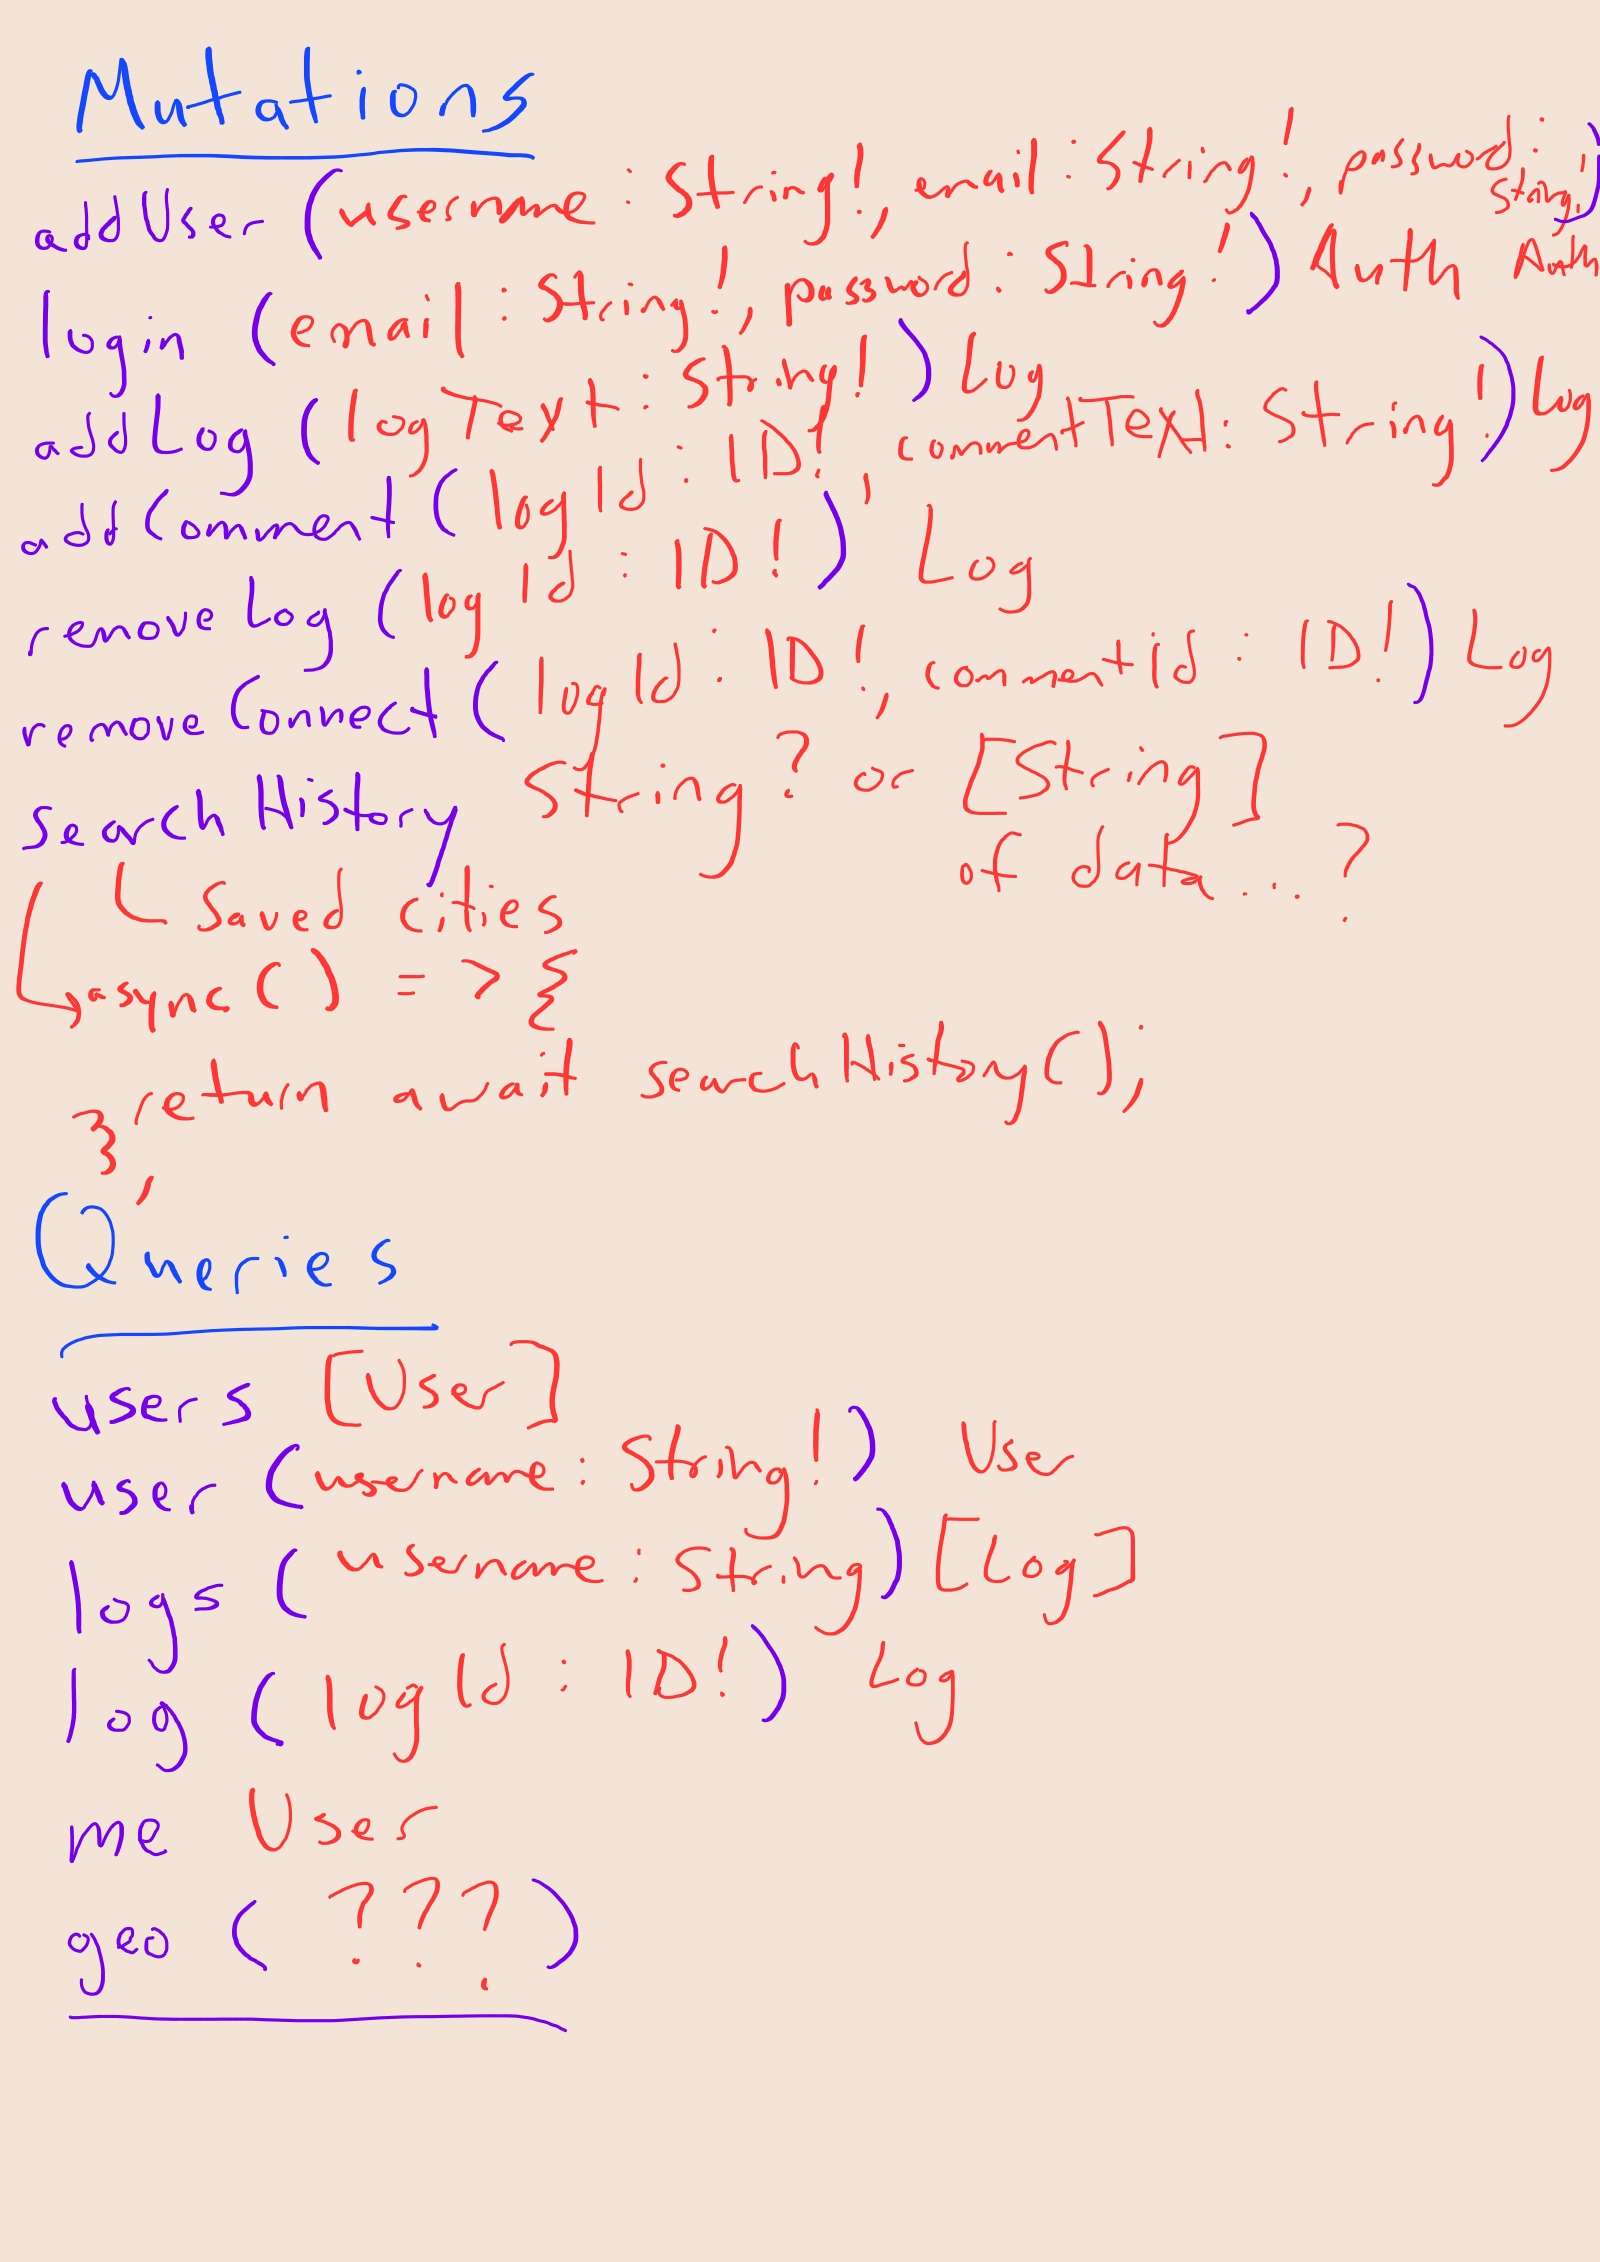 Mutations
addUser (username : String!, email : String!, password : String!) Auth
login (email : String!, password : String!) Auth
addLog (logText : String!) Log
addComment (logId : ID!, commentText : String!) Log
removeLog (logId : ID!) Log
removeConnect (logId : ID!, commentid : ID!) Log
searchHistory String? or [String]
of data...?
Saved cities
async () => {
return await searchHistory();
};
Queries
users [User]
user (username : String!) User
logs (username : String) [Log]
log (logId : ID!) Log
me User
geo (???)